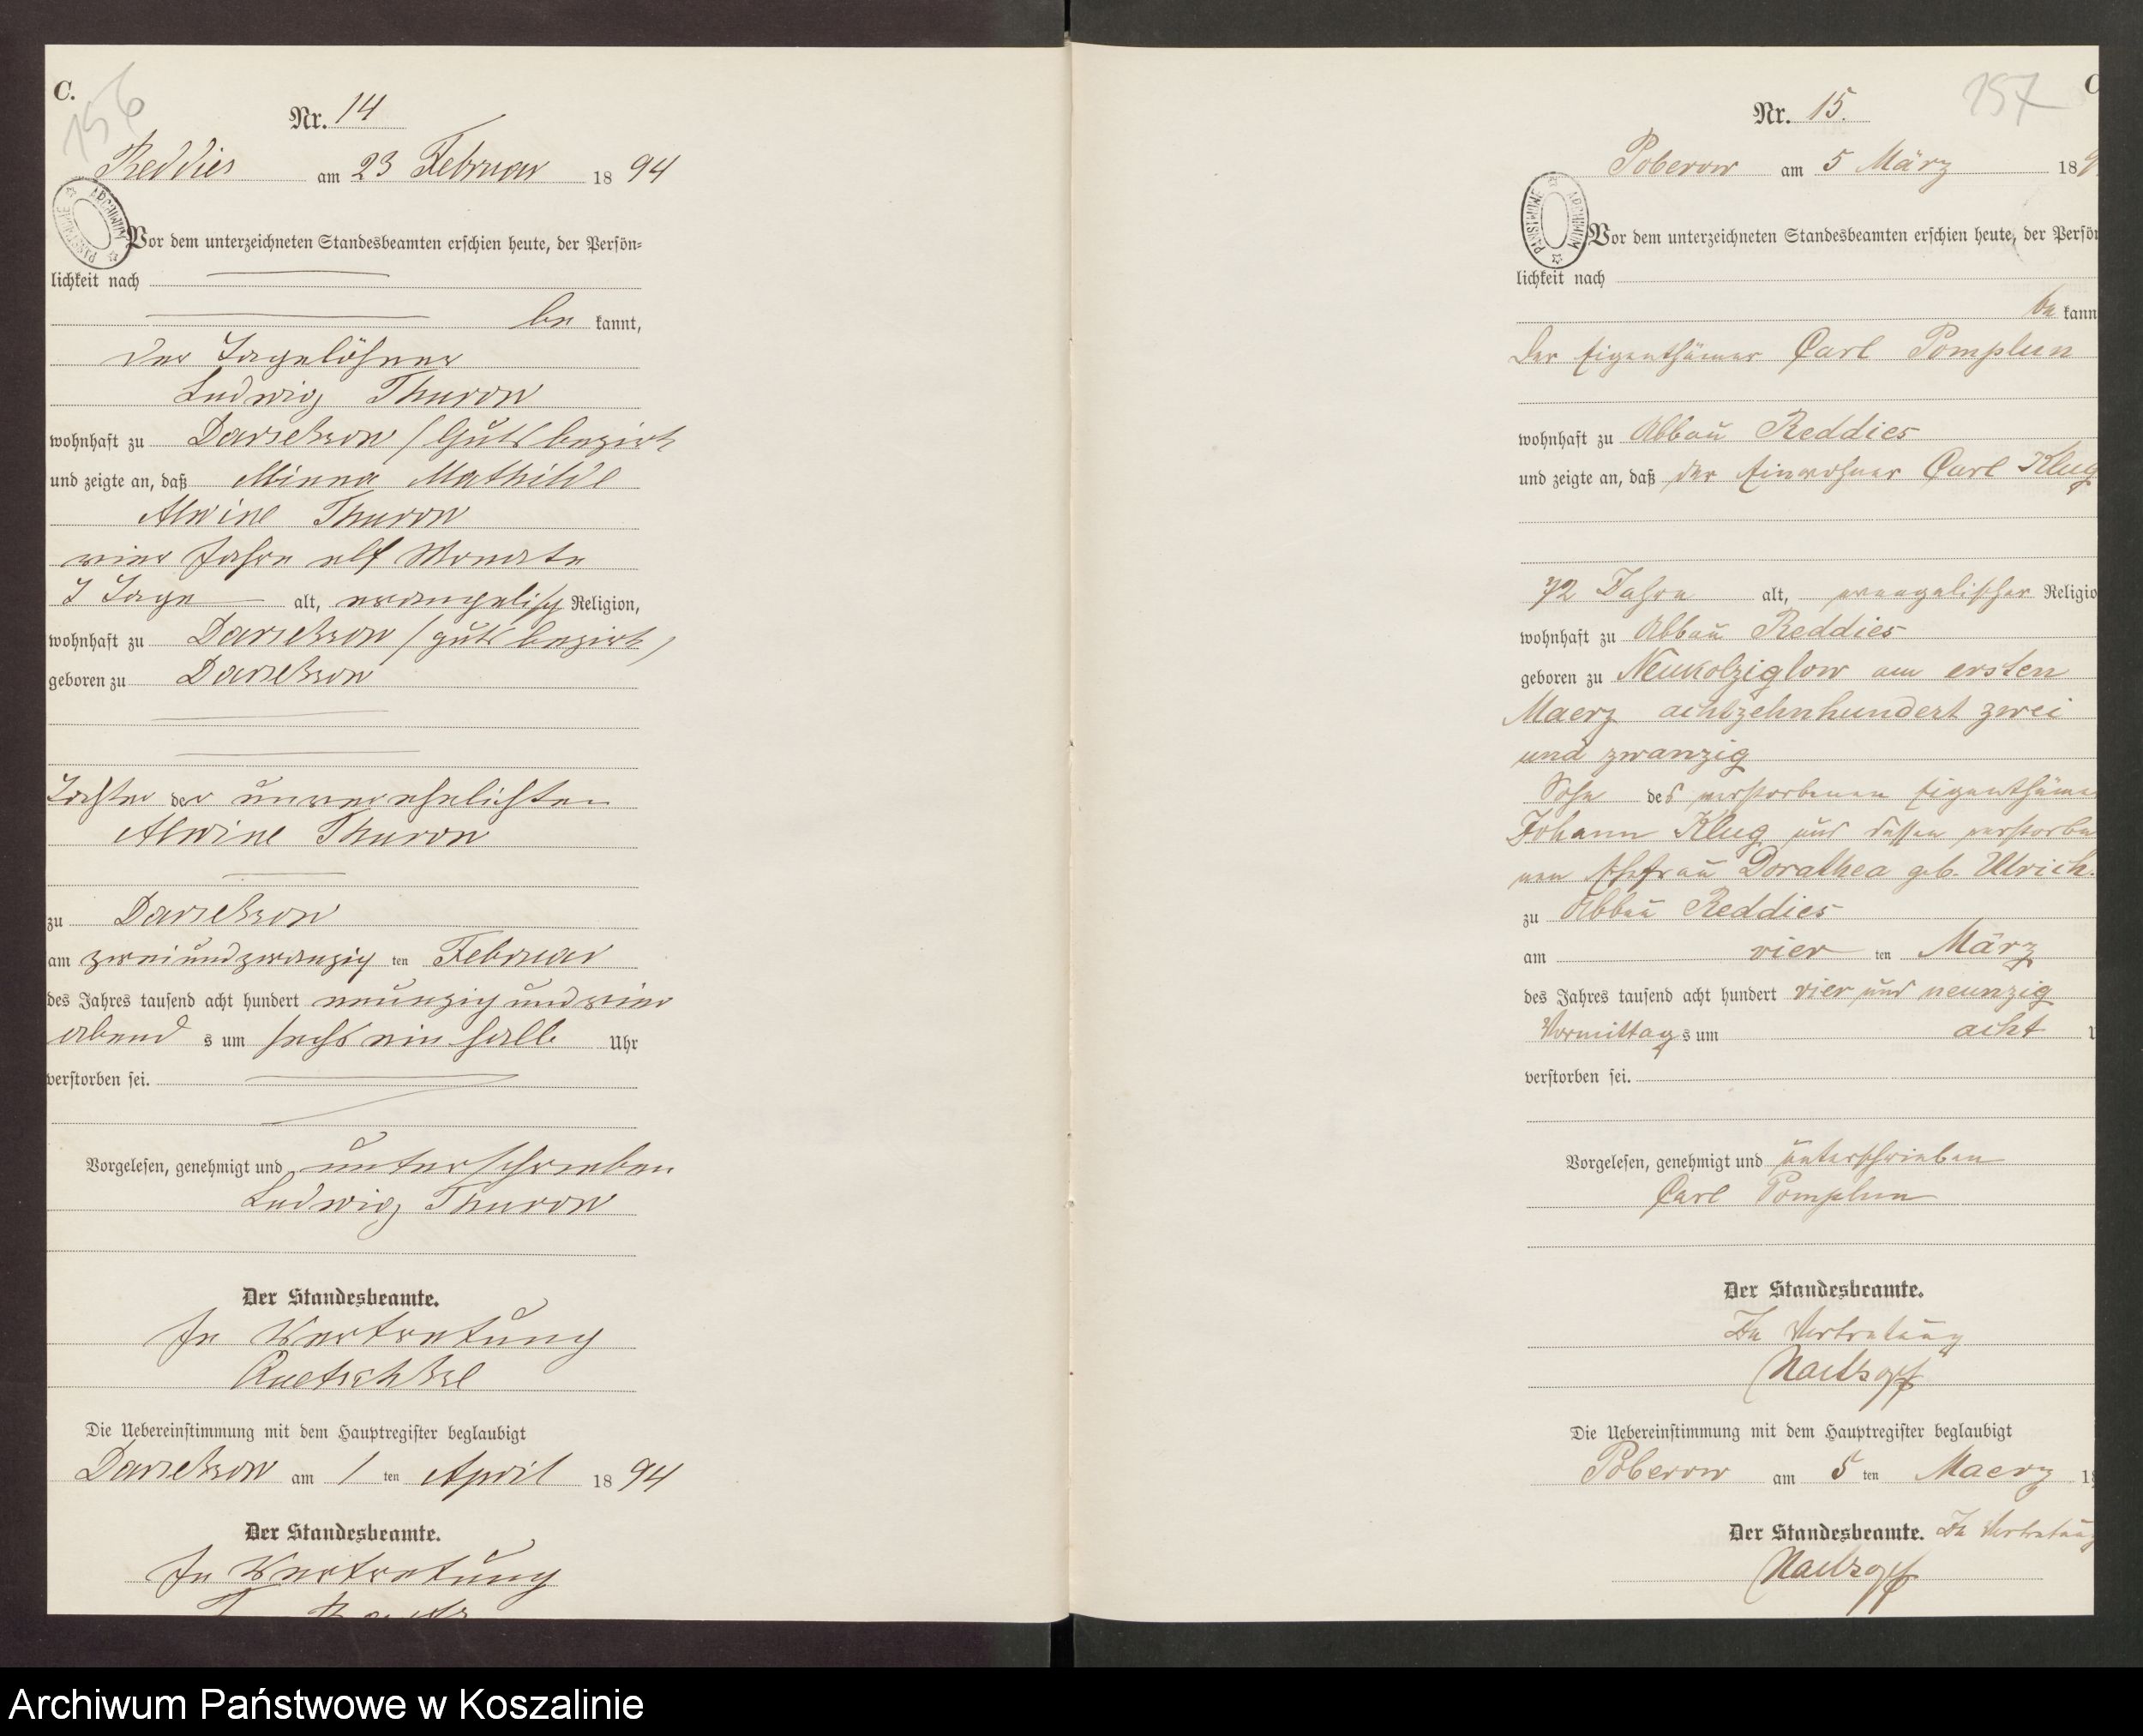 C.
156
Nr. 14
Reddies am 23 Februar 18 94
ARCHIWUM PAŃSTWOWE
Vor dem unterzeichneten Standesbeamten erschien heute, der Persön=
lichkeit nach
be kannt,
der Tagelöhner
Ludwig Thurow
wohnhaft zu Darsekow /Gutsbezirk
und zeigte an, daß Minna Mathilde
Alwine Thurow
vier Jahre elf Monate
Tage alt, evangelisch Religion,
wohnhaft zu Darsekow /Gutsbezirk/
geboren zu Darsekow
Tochter der unverehelichten
Alwine Thurow
zu Darsekow
am zweiundzwanzig ten Februar
des Jahres tausend acht hundert neunzig und vier
abend s um sechs ein halb Uhr
verstorben sei.
Vorgelesen, genehmigt und unterschrieben
Ludwig Thurow
Der Standesbeamte.
In Vertretung
Quetschke
Die Uebereinstimmung mit dem Hauptregister beglaubigt
Darsekow am 1 ten April 18 94
Der Standesbeamte.
In Vertretung
157
C
Nr. 15.
Poberow am 5 März 189
ARCHIWUM PAŃSTWOWE
Vor dem unterzeichneten Standesbeamten erschien heute, der Persön
lichkeit nach
be kann
der Eigenthümer Carl Pomplun
wohnhaft zu Abbau Reddies
und zeigte an, daß der Einwohner Carl Klug
72 Jahre alt, evangelischer Religio
wohnhaft zu Abbau Reddies
geboren zu Neukolziglow am ersten
Maerz achtzehnhundert zwei
und zwanzig
Sohn des verstorbenen Eigenthüme
Johann Klug und dessen verstorbe
nen Ehefrau Dorathea geb. Ulrich.
zu Abbau Reddies
am vier ten März
des Jahres tausend acht hundert vier und neunzig
Vormittag s um acht U
verstorben sei.
Vorgelesen, genehmigt und unterschrieben
Carl Pomplun
Der Standesbeamte.
In Vertretung
Die Uebereinstimmung mit dem Hauptregister beglaubigt
Poberow am 5 ten Maerz 18
Der Standesbeamte. In Vertretung
Archiwum Państwowe w Koszalinie